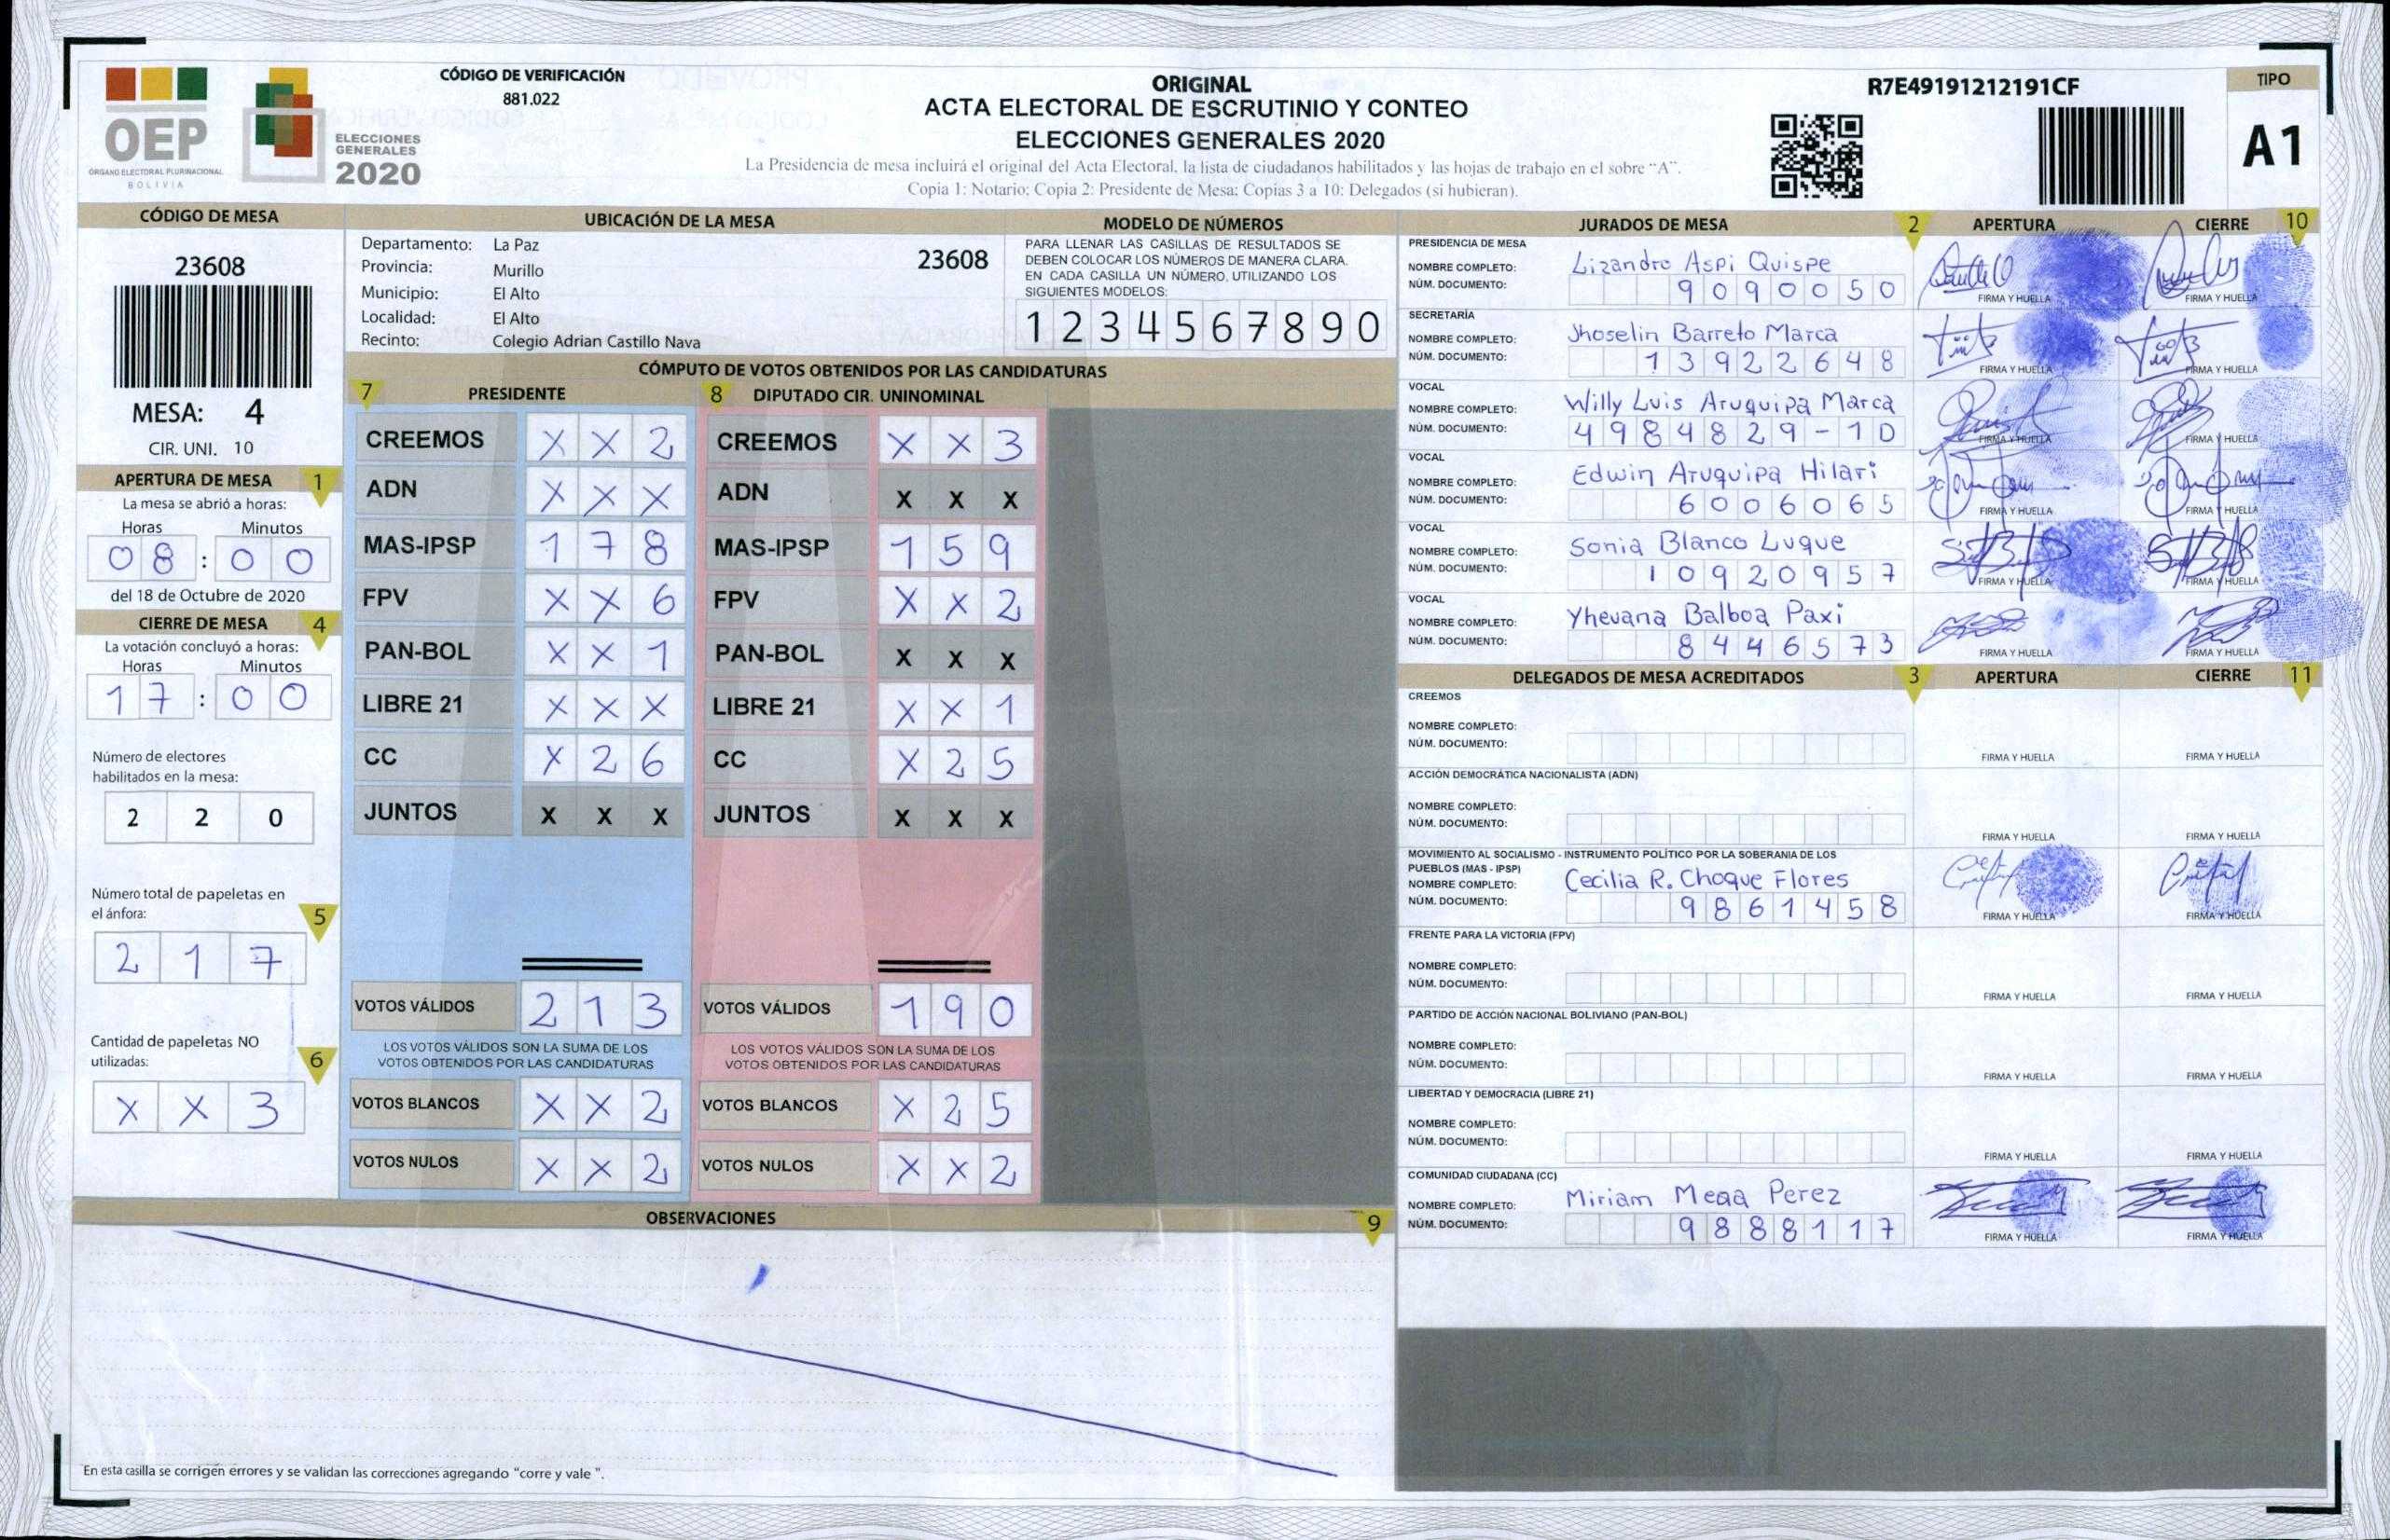 OEP
ÓRGANO ELECTORAL PLURINACIONAL
BOLIVIA
ELECCIONES
GENERALES
2020
CÓDIGO DE VERIFICACIÓN
881.022
ORIGINAL
ACTA ELECTORAL DE ESCRUTINIO Y CONTEO
ELECCIONES GENERALES 2020
La Presidencia de mesa incluirá el original del Acta Electoral, la lista de ciudadanos habilitados y las hojas de trabajo en el sobre "A".
Copia 1: Notario; Copia 2: Presidente de Mesa; Copias 3 a 10: Delegados (si hubieran).
R7E49191212191CF
TIPO
A1
CÓDIGO DE MESA
23608
MESA: 4
CIR. UNI. 10
APERTURA DE MESA 1
La mesa se abrió a horas:
Horas Minutos
08 : 00
del 18 de Octubre de 2020
CIERRE DE MESA 4
La votación concluyó a horas:
Horas Minutos
17 : 00
Número de electores
habilitados en la mesa:
2 2 0
Número total de papeletas en
el ánfora: 5
2 1 7
Cantidad de papeletas NO
utilizadas: 6
X X 3
UBICACIÓN DE LA MESA
Departamento: La Paz
Provincia: Murillo
Municipio: El Alto
Localidad: El Alto
Recinto: Colegio Adrian Castillo Nava
23608
MODELO DE NÚMEROS
PARA LLENAR LAS CASILLAS DE RESULTADOS SE
DEBEN COLOCAR LOS NÚMEROS DE MANERA CLARA.
EN CADA CASILLA UN NÚMERO, UTILIZANDO LOS
SIGUIENTES MODELOS:
1 2 3 4 5 6 7 8 9 0
CÓMPUTO DE VOTOS OBTENIDOS POR LAS CANDIDATURAS
7 PRESIDENTE
CREEMOS X X 2
ADN X X X
MAS-IPSP 1 7 8
FPV X X 6
PAN-BOL X X 1
LIBRE 21 X X X
CC X 2 6
JUNTOS X X X
VOTOS VÁLIDOS 2 1 3
LOS VOTOS VÁLIDOS SON LA SUMA DE LOS
VOTOS OBTENIDOS POR LAS CANDIDATURAS
VOTOS BLANCOS X X 2
VOTOS NULOS X X 2
8 DIPUTADO CIR. UNINOMINAL
CREEMOS X X 3
ADN X X X
MAS-IPSP 1 5 9
FPV X X 2
PAN-BOL X X X
LIBRE 21 X X 1
CC X 2 5
JUNTOS X X X
VOTOS VÁLIDOS 1 9 0
LOS VOTOS VÁLIDOS SON LA SUMA DE LOS
VOTOS OBTENIDOS POR LAS CANDIDATURAS
VOTOS BLANCOS X 2 5
VOTOS NULOS X X 2
OBSERVACIONES 9
En esta casilla se corrigen errores y se validan las correcciones agregando "corre y vale ".
JURADOS DE MESA 2 APERTURA CIERRE 10
PRESIDENCIA DE MESA
NOMBRE COMPLETO: Lizandro Aspi Quispe
NÚM. DOCUMENTO: 9090050 FIRMA Y HUELLA FIRMA Y HUELLA
SECRETARÍA
NOMBRE COMPLETO: Jhoselin Barreto Marca
NÚM. DOCUMENTO: 13922648 FIRMA Y HUELLA FIRMA Y HUELLA
VOCAL
NOMBRE COMPLETO: Willy Luis Aruquipa Marca
NÚM. DOCUMENTO: 4984829-1D FIRMA Y HUELLA FIRMA Y HUELLA
VOCAL
NOMBRE COMPLETO: Edwin Aruquipa Hilari
NÚM. DOCUMENTO: 6006065 FIRMA Y HUELLA FIRMA Y HUELLA
VOCAL
NOMBRE COMPLETO: Sonia Blanco Luque
NÚM. DOCUMENTO: 10920957 FIRMA Y HUELLA FIRMA Y HUELLA
VOCAL
NOMBRE COMPLETO: Yhevana Balboa Paxi
NÚM. DOCUMENTO: 8446573 FIRMA Y HUELLA FIRMA Y HUELLA
DELEGADOS DE MESA ACREDITADOS 3 APERTURA CIERRE 11
CREEMOS
NOMBRE COMPLETO:
NÚM. DOCUMENTO: FIRMA Y HUELLA FIRMA Y HUELLA
ACCIÓN DEMOCRÁTICA NACIONALISTA (ADN)
NOMBRE COMPLETO:
NÚM. DOCUMENTO: FIRMA Y HUELLA FIRMA Y HUELLA
MOVIMIENTO AL SOCIALISMO - INSTRUMENTO POLÍTICO POR LA SOBERANIA DE LOS
PUEBLOS (MAS - IPSP)
NOMBRE COMPLETO: Cecilia R. Choque Flores
NÚM. DOCUMENTO: 9861458 FIRMA Y HUELLA FIRMA Y HUELLA
FRENTE PARA LA VICTORIA (FPV)
NOMBRE COMPLETO:
NÚM. DOCUMENTO: FIRMA Y HUELLA FIRMA Y HUELLA
PARTIDO DE ACCIÓN NACIONAL BOLIVIANO (PAN-BOL)
NOMBRE COMPLETO:
NÚM. DOCUMENTO: FIRMA Y HUELLA FIRMA Y HUELLA
LIBERTAD Y DEMOCRACIA (LIBRE 21)
NOMBRE COMPLETO:
NÚM. DOCUMENTO: FIRMA Y HUELLA FIRMA Y HUELLA
COMUNIDAD CIUDADANA (CC)
NOMBRE COMPLETO: Miriam Perez
NÚM. DOCUMENTO: 9888117 FIRMA Y HUELLA FIRMA Y HUELLA